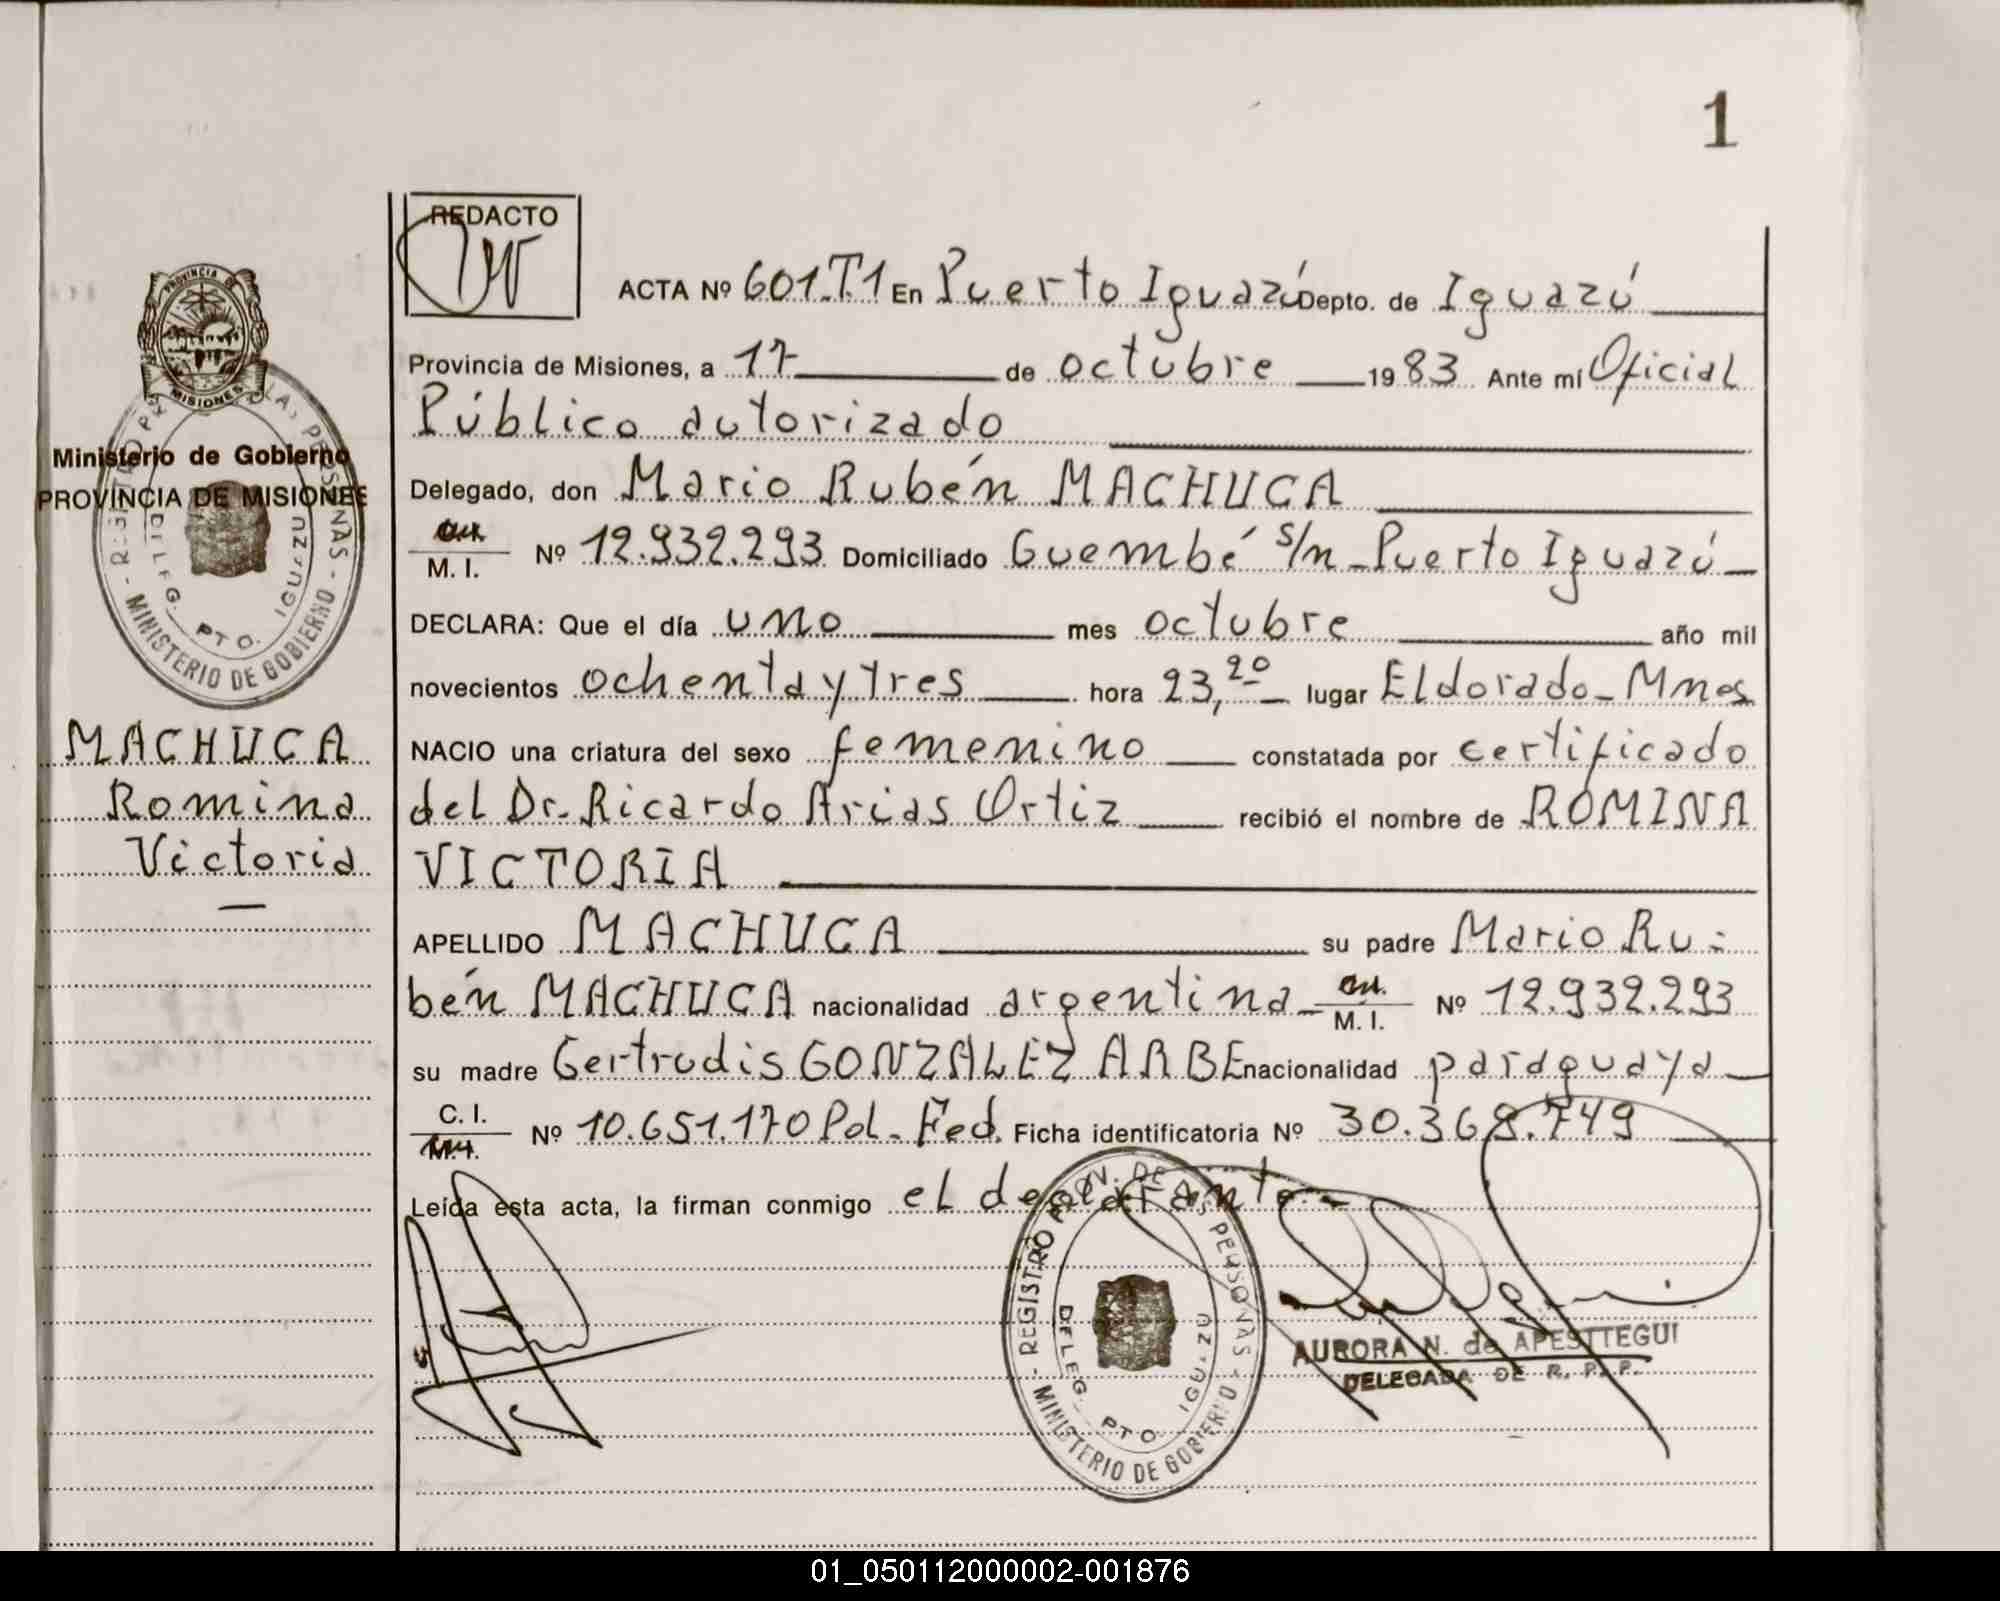 1
REDACTO
PROVINCIA DE
MISIONES
Ministerio de Gobierno
PROVINCIA DE MISIONES
MINISTERIO DE GOBIERNO
DELEG. PTO. IGUAZU
MACHUCA
Romina
Victoria
ACTA Nº 601.T1 En Puerto Iguazú Depto. de Iguazú
Provincia de Misiones, a 17 de octubre 1983 Ante mí Oficial
Público autorizado
Delegado, don Mario Rubén MACHUCA
M. I. Nº 12.932.293 Domiciliado Guembé s/n - Puerto Iguazú
DECLARA: Que el día uno mes octubre año mil
novecientos ochenta y tres hora 23,20 lugar Eldorado - Mnes
NACIO una criatura del sexo femenino constatada por certificado
del Dr. Ricardo Arias Ortiz recibió el nombre de ROMINA
VICTORIA
APELLIDO MACHUCA su padre Mario Ru-
bén MACHUCA nacionalidad argentina M. I. Nº 12.932.293
su madre Gertrudis GONZALEZ ARBE nacionalidad paraguaya
C. I. Nº 10.651.170 Pol. Fed. Ficha identificatoria Nº 30.368.749
Leída esta acta, la firman conmigo el declarante.
REGISTRO PROV. DE LAS PERSONAS - MINISTERIO DE GOBIERNO
DELEG. PTO. IGUAZU
AURORA N. de APESTTEGUI
DELEGADA DE R. P. P.
01_050112000002-001876